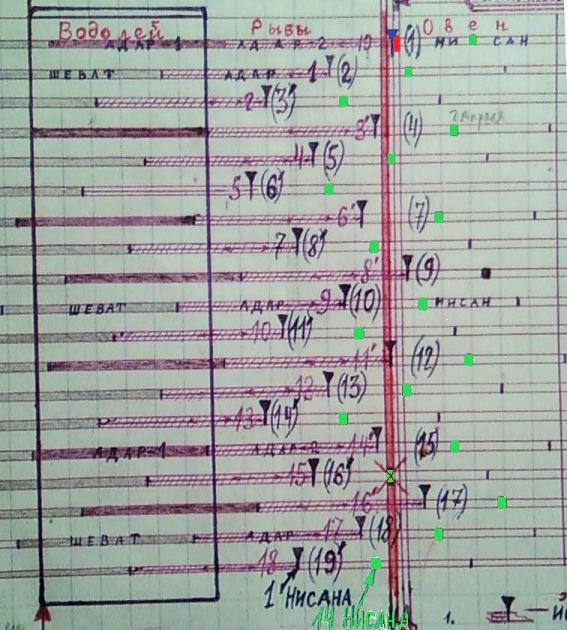 Водолей Рыбы Овен
АДАР-1 АДАР-2 19 (1) НИСАН
ШЕВАТ АДАР 1 (2)
2 (3)
3 (4) 2 апреля
4 (5)
5 (6)
6 (7)
7 (8)
8 (9)
ШЕВАТ АДАР 9 (10) НИСАН
10 (11)
11 (12)
12 (13)
13 (14)
АДАР-1 АДАР-2 14 (15)
15 (16)
16 (17)
ШЕВАТ АДАР 17 (18)
18 (19)
1 НИСАНА
14 НИСАНА
1.